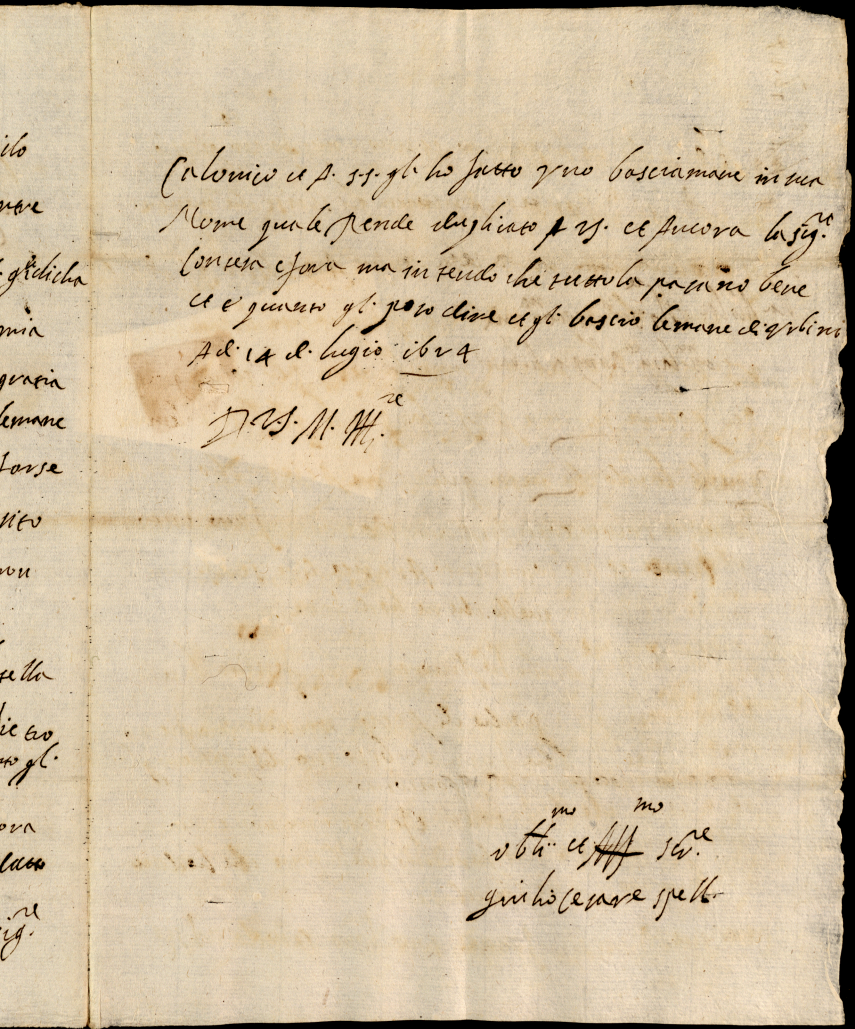 ilo
ntre
gredicha
mia
gratia
lemane
forse
uito
non
sella
dietro
to gl.
ora
latto
sig.re
Calonico et A. s.s. gl. ho fatto vno basciamane in sua
Nome quale Rende dugliato p VS. et Ancora la sig.re
Contesa e fora ma intendo che tutto la pasano bene
et e quanto gl. poso dire et gl. bascio lemane di vrbino
A di 14 d. lugio 1624
D. V.S. M. Ill.re
obli.mo et Aff.mo ser.re
giulio Cesare spell.